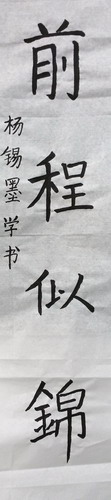 前程似錦
杨锡墨学书